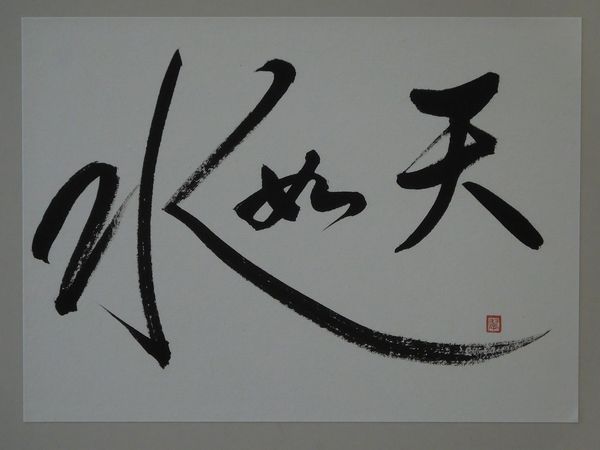 天如水